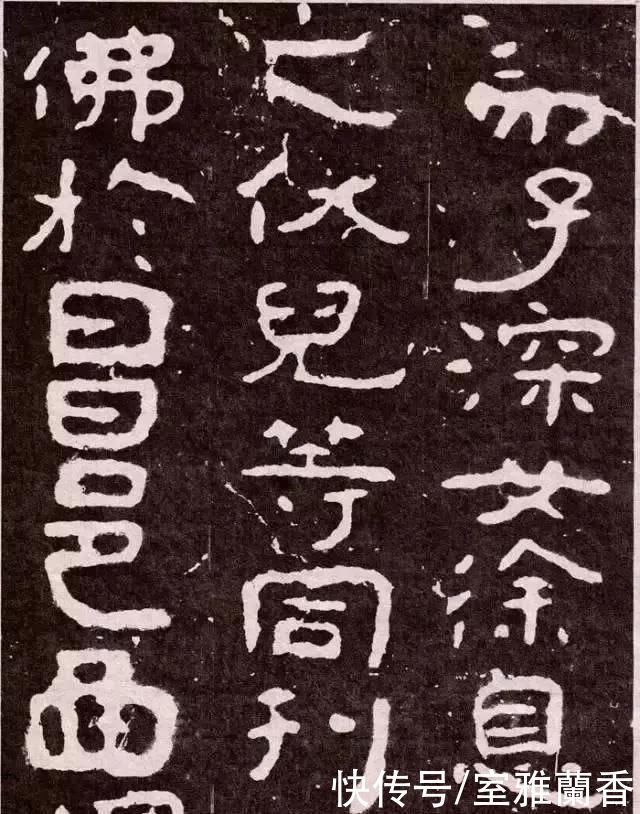 子深妻徐息
之伏兒等同刊
佛於昌邑西
快传号/室雅蘭香